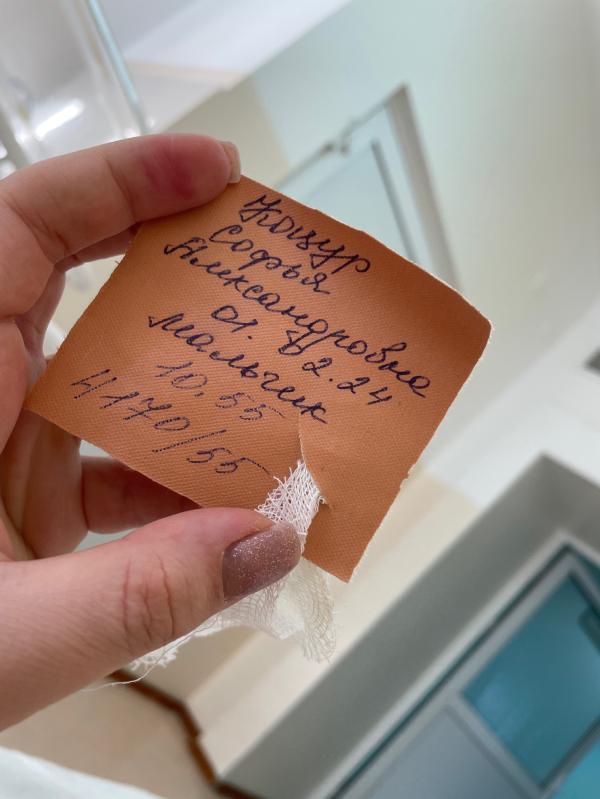 Коцур
Софья
Александровна
01.02.24
мальчик
10.55
4170/55